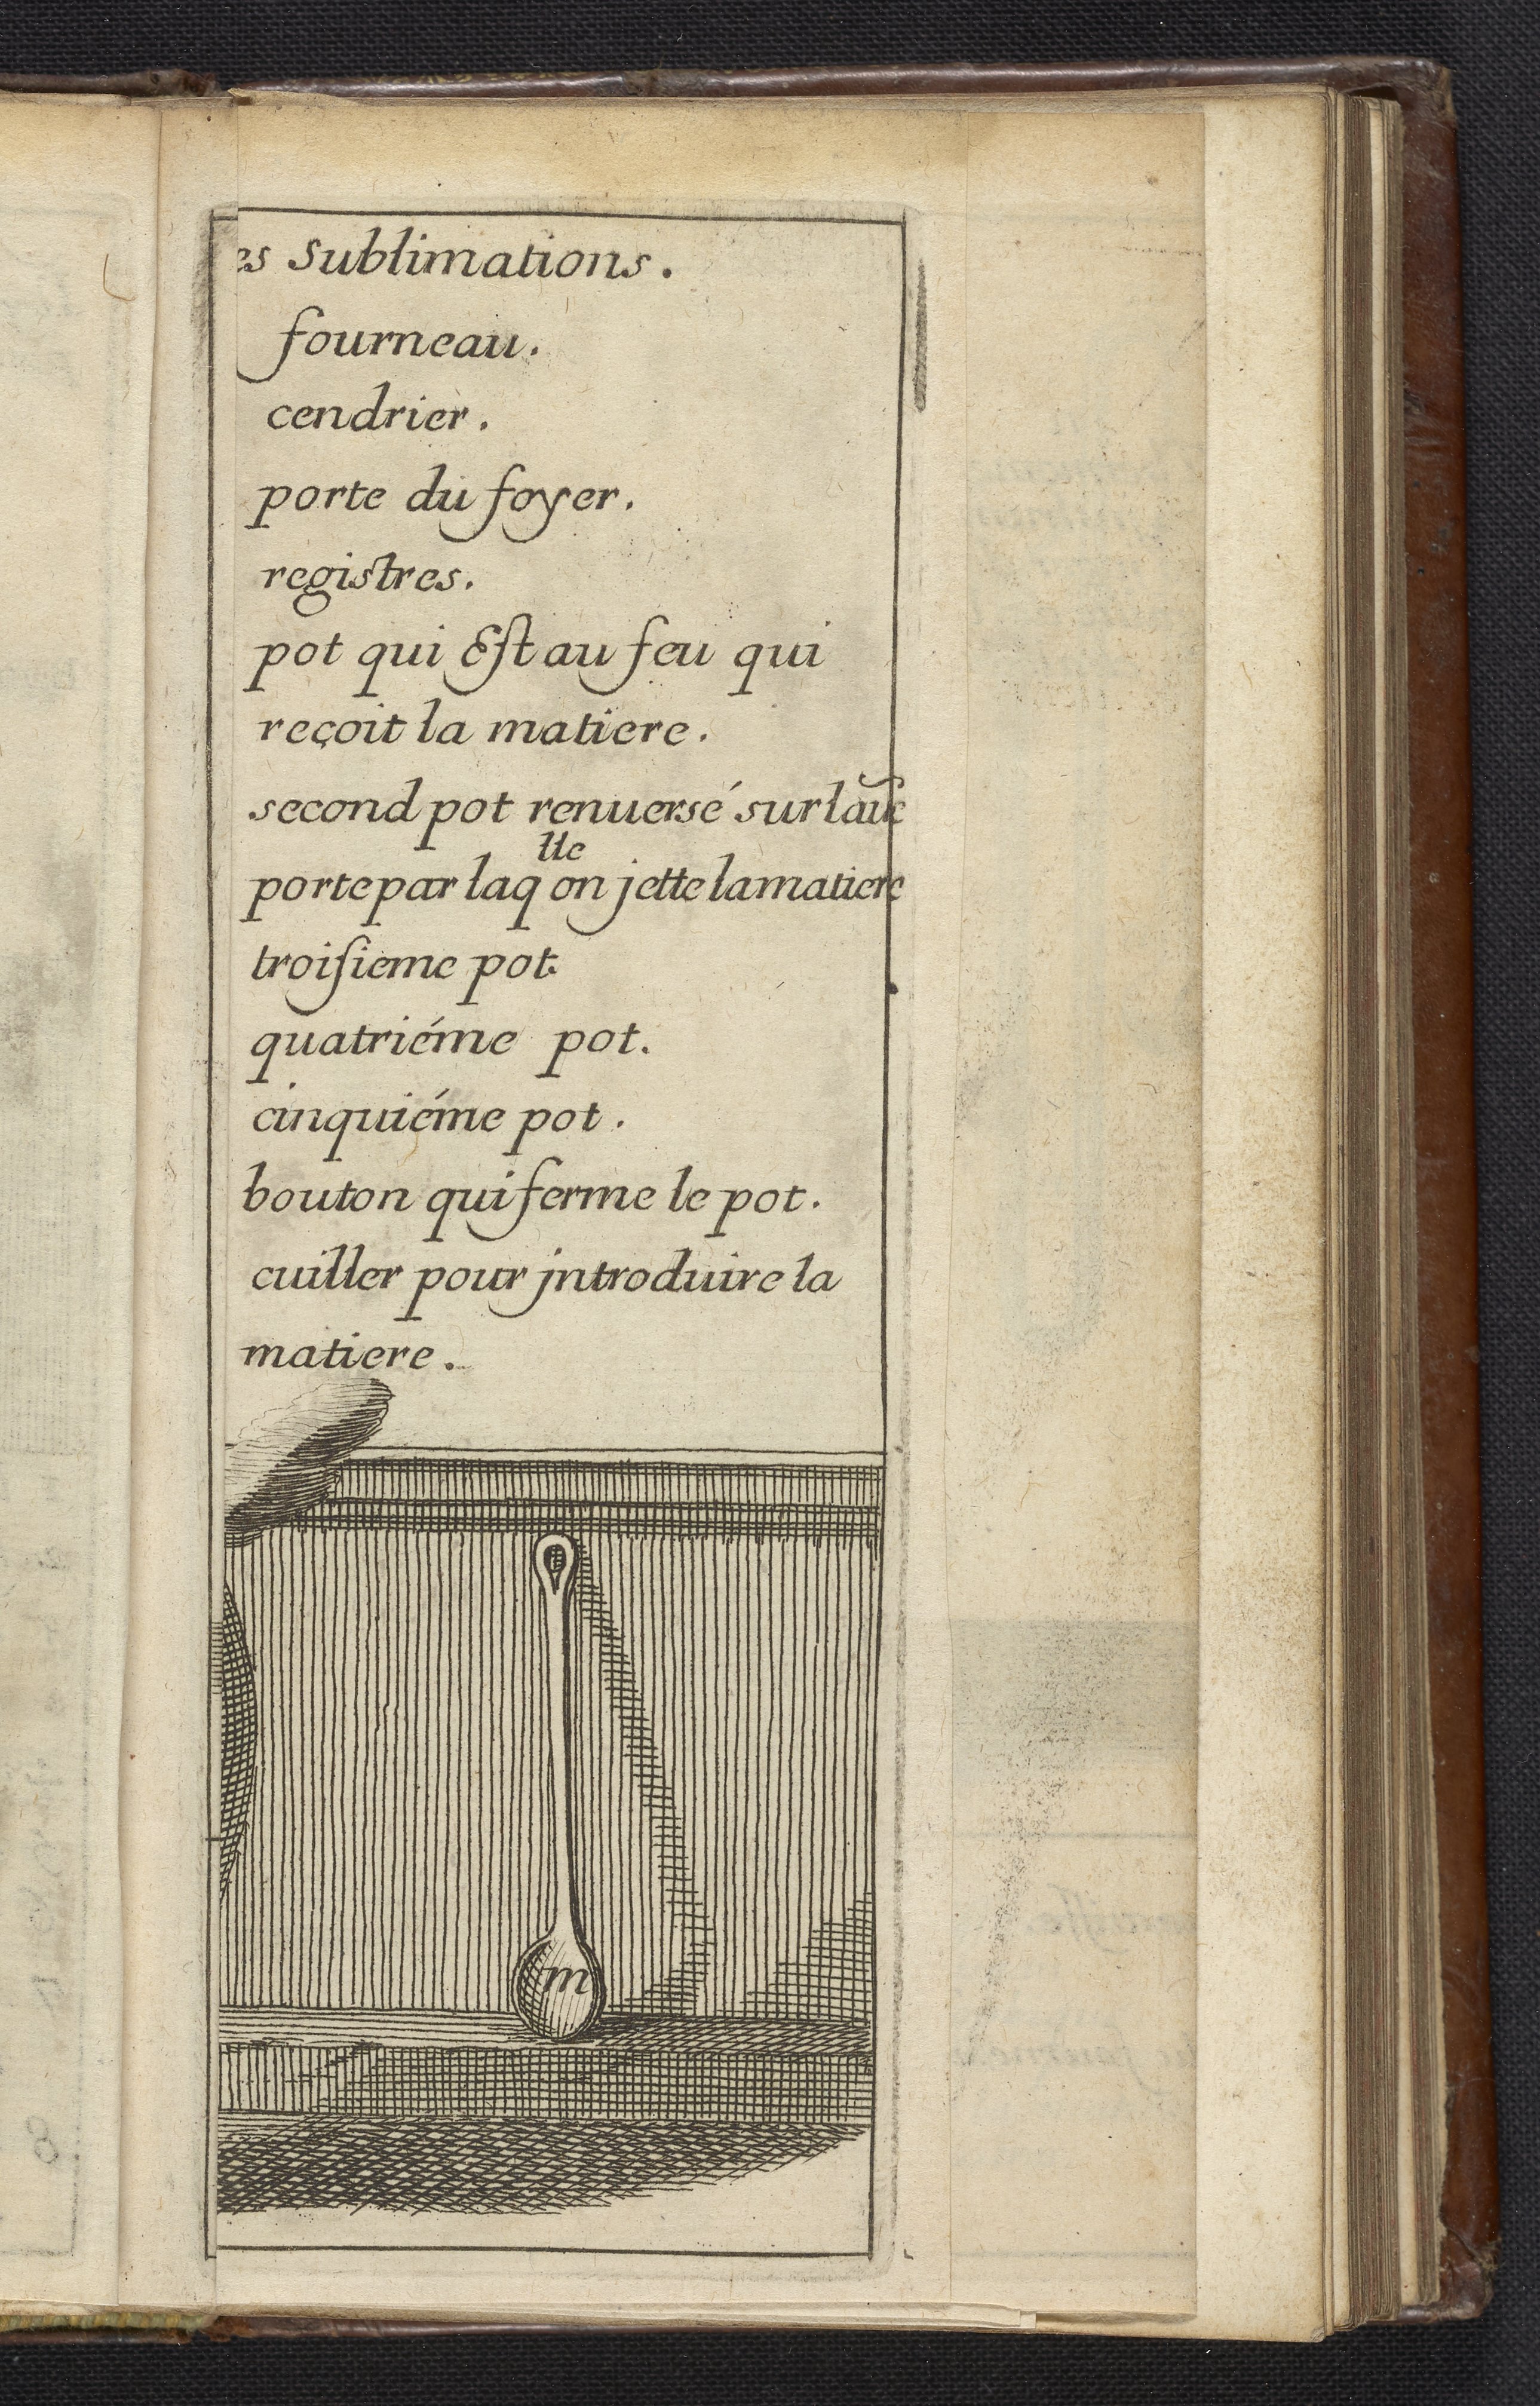 es sublimations.
fourneau.
cendrier.
porte du foyer.
registres.
pot qui Est au feu qui
reçoit la matiere.
second pot renuersé sur
porte par laq lle on jette la matiere
troisieme pot.
quatriéme pot.
cinquiéme pot.
bouton qui ferme le pot.
cuiller pour jntroduire la
matiere.
m